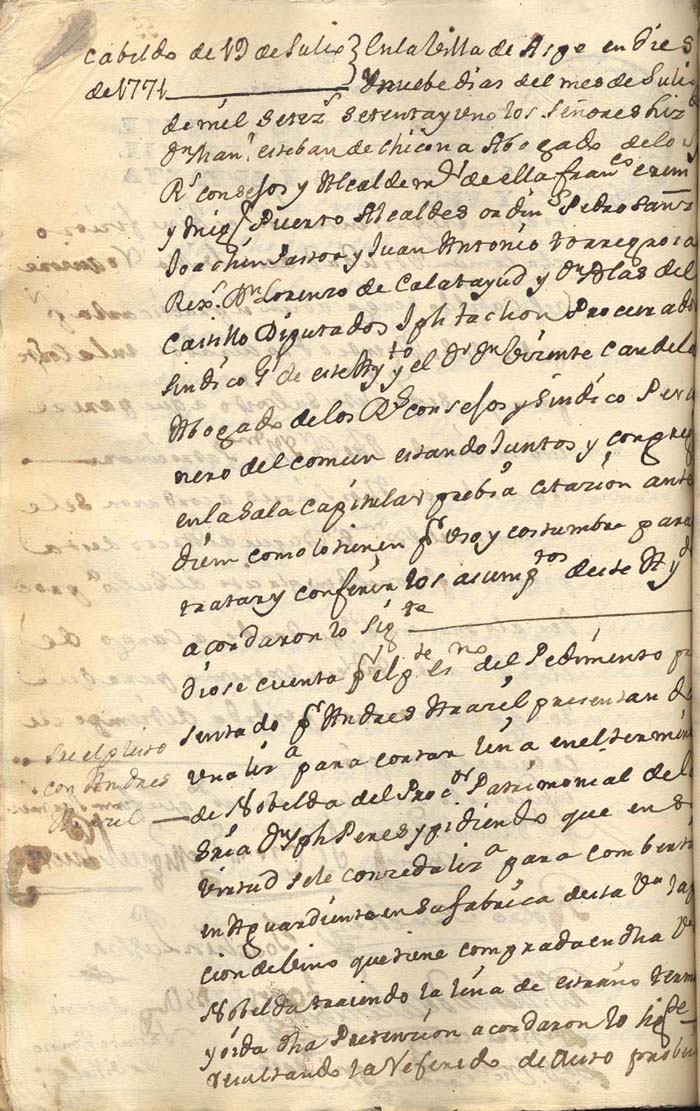 Cabildo de 19 de Julio } En la Villa de Aspe en dies
de 1771 y nuebe dias del mes de Julio
de mil setez.s setenta y uno los Señores
D.n esteban de chicona Abogado de los
R.s consejos y Alcalde m.or de ella fran.co
y Mig.l Puerto Alcaldes ordin.s Pedro Sanz
Joachin Pastor y Juan Antonio torregrosa
Rex.s D.n Lorenzo de Calatayud y D.n Blas del
Castillo Diputados Jph tachon Procurador
Sindico G.l de este Ay.to y el D.r D.n Vizente Candela
Abogado de los R.s consejos y Sindico Perso
nero del comun estando Juntos y congreg
en la Sala Capitular prebia citazion ante
diem como lo tienen p.r uso y costumbre para
tratar y conferir los asump.tos de este Ay.to
acordaron lo sig.te
Diose cuenta p.r el p.te es.no del Pedimento pre
sentado p.r Andres Ararèl presentando
una liz.a para cortar leña en el termino
de Nobelda del Proc.or Patrimonial de la
Sria D.n Jph Peres y pidiendo que en su
virtud se le conzeda liz.a para combertir
en Aguardiente en su fabrica de esta V.a la
cion de Vino que tiene comprada en dha V.a
Nobelda trayendo la leña de estraño termino
y oida dha Pretencion acordaron lo sig.te
resultando la Referido de Auto
Sre el pleito
con Andres
Ararel